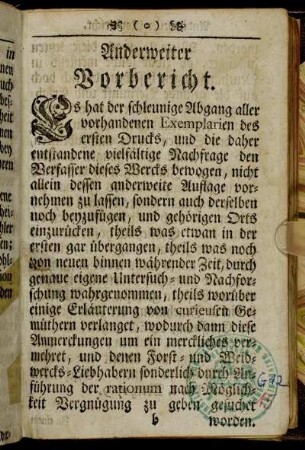 ( o )
Anderweiter
Vorbericht.
Es hat der schleunige Abgang aller
vorhandenen Exemplarien des
ersten Drucks, und die daher
entstandene vielfältige Nachfrage den
Verfasser dieses Wercks bewogen, nicht
allein dessen anderweite Auflage vor-
nehmen zu lassen, sondern auch derselben
noch beyzufügen, und gehörigen Orts
einzurücken, theils was etwan in der
ersten gar übergangen, theils was noch
von neuen binnen währender Zeit, durch
genaue eigene Untersuch- und Nachfor-
schung wahrgenommen, theils worüber
einige Erläuterung von curieusen Ge-
müthern verlanget, wodurch dann diese
Anmerckungen um ein merckliches ver-
mehret, und denen Forst- und Weid-
wercks-Liebhabern sonderlich durch An-
führung der rationum nach Möglich-
keit Vergnügung zu geben gesuchet
b worden.